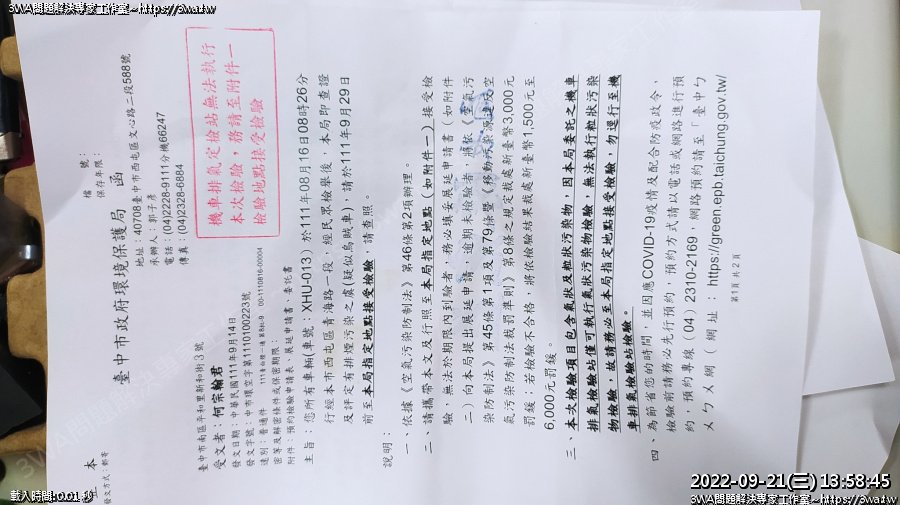 3WA問題解決專家工作室~https://3wa.tw
正本
發文方式：郵寄
檔　　號：
保存年限：
臺中市政府環境保護局　函
地址：40708臺中市西屯區文心路二段588號
承辦人：郭子彥
電話：(04)2228-9111分機66247
傳真：(04)2328-6884
機車排氣定檢站無法執行
本次檢驗，務請至附件一
檢驗地點接受檢驗
臺中市南區平和里新和街3號
受文者：何宗翰君
發文日期：中華民國111年9月14日
發文字號：中市環空字第1110100223號
速別：普通件
密等及解密條件或保密期限：
附件：預約檢驗申請表、展延申請書、委託書
主旨：您所有車輛(車號：XHU-013)於111年08月16日08時26分
行經本市西屯區青海路一段，經民眾檢舉後，本局即查證
及評定有排煙污染之虞(疑似烏賊車)，請於111年9月29日
前至本局指定地點接受檢驗，請查照。
說明：
一、依據《空氣污染防制法》第46條第2項辦理。
二、請攜帶本文及行照至本局指定地點（如附件一）接受檢
驗，無法於期限內到驗者，務必填妥展延申請書（如附件
二）向本局提出展延申請，逾期未檢驗者，將依《空氣污
染防制法》第45條第1項及第79條暨《移動污染源違反空
氣污染防制法裁罰準則》第8條之規定裁處新臺幣3,000元
罰鍰；若檢驗不合格，將依檢驗結果裁處新臺幣1,500元至
6,000元罰鍰。
三、本次檢驗項目包含氣狀及粒狀污染物，因本局委託之機車
排氣檢驗站僅可執行氣狀污染物檢驗，無法執行粒狀污染
物檢驗，故請務必至本局指定地點接受檢驗，勿逕行至機
車排氣檢驗站檢驗。
四、為節省您的時間，並因應COVID-19疫情及配合防疫政令，
檢驗前請務必先行預約，預約方式請以電話或網路進行預
約，預約專線（04）2310-2169，網路預約請至「臺中ㄅ
ㄨㄅㄨ（網址：https://green.epb.taichung.gov.tw/
第1頁 共2頁
載入時間:0.01 秒
2022-09-21(三) 13:58:45
3WA問題解決專家工作室~https://3wa.tw